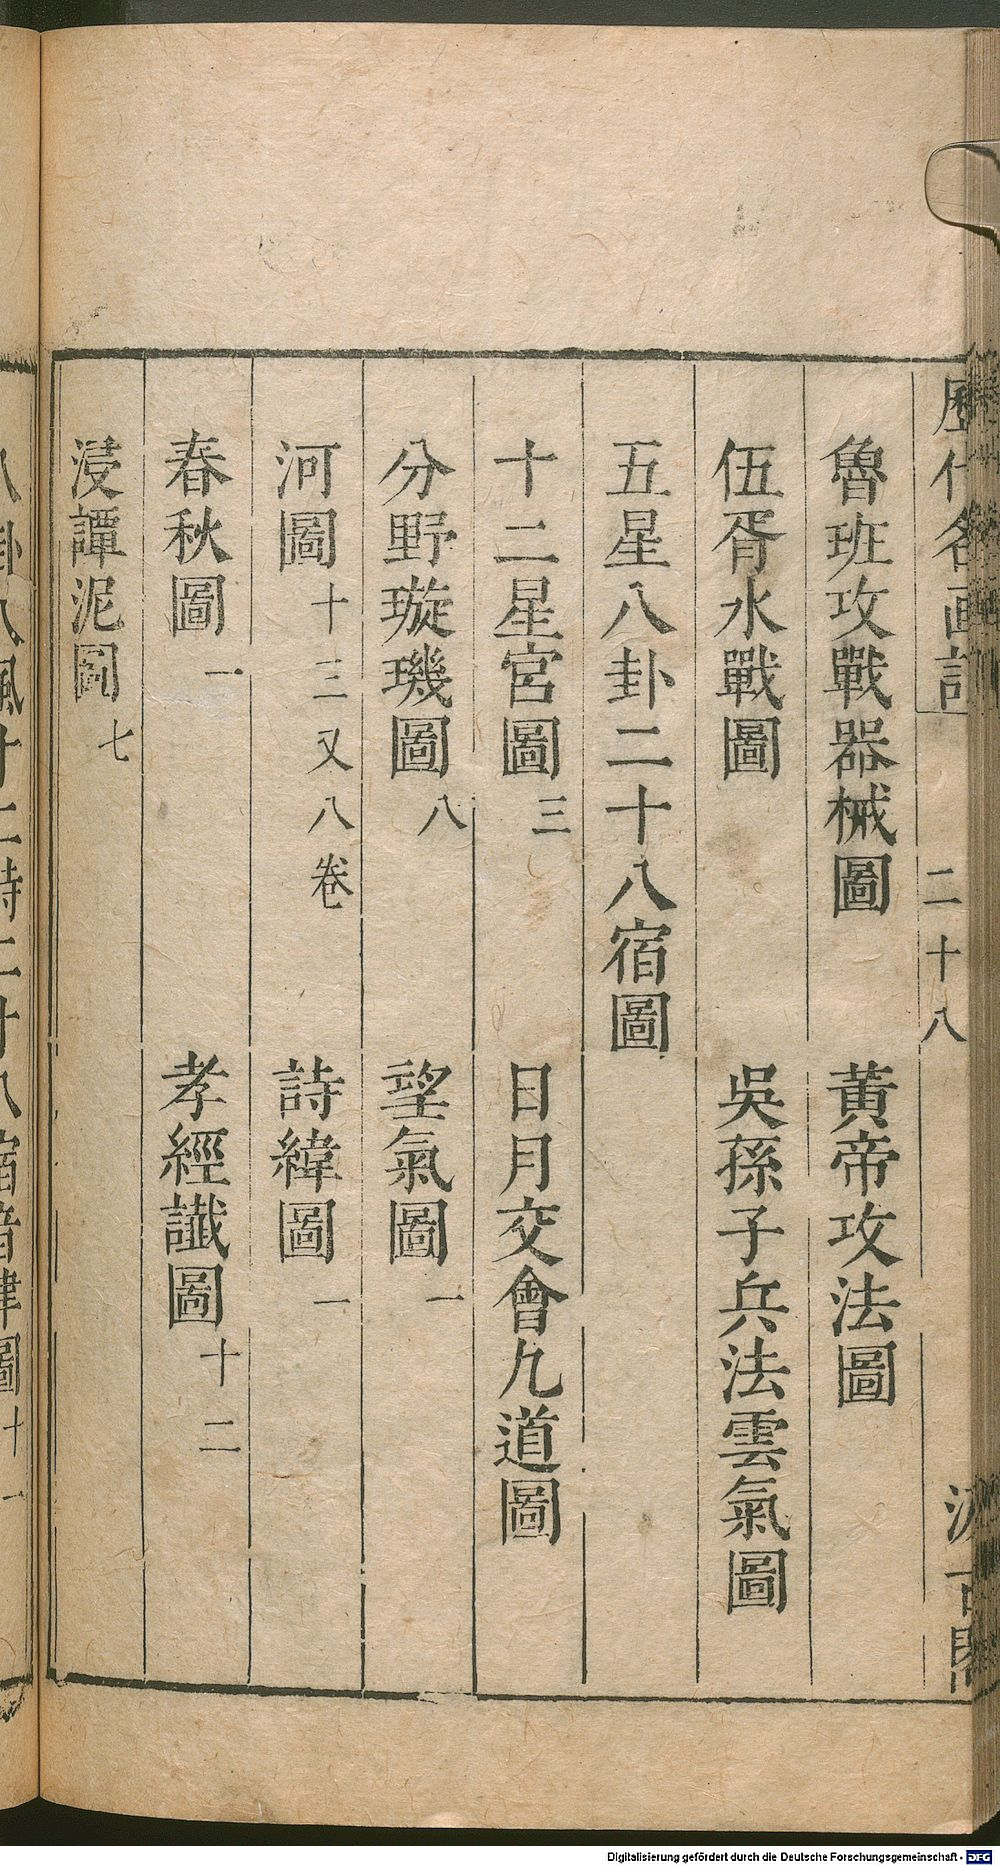 歷代名畫記 二十八 汲古閣
魯班攻戰器械圖 黃帝攻法圖
伍胥水戰圖 吳孫子兵法雲氣圖
五星八卦二十八宿圖
十二星宮圖三 日月交會九道圖
分野璇璣圖八 望氣圖一
河圖十三又八卷 詩緯圖一
春秋圖一 孝經讖圖十二
浸譚泥圖七
八卦八風十二時二十八宿音律圖十一
Digitalisierung gefördert durch die Deutsche Forschungsgemeinschaft - DFG